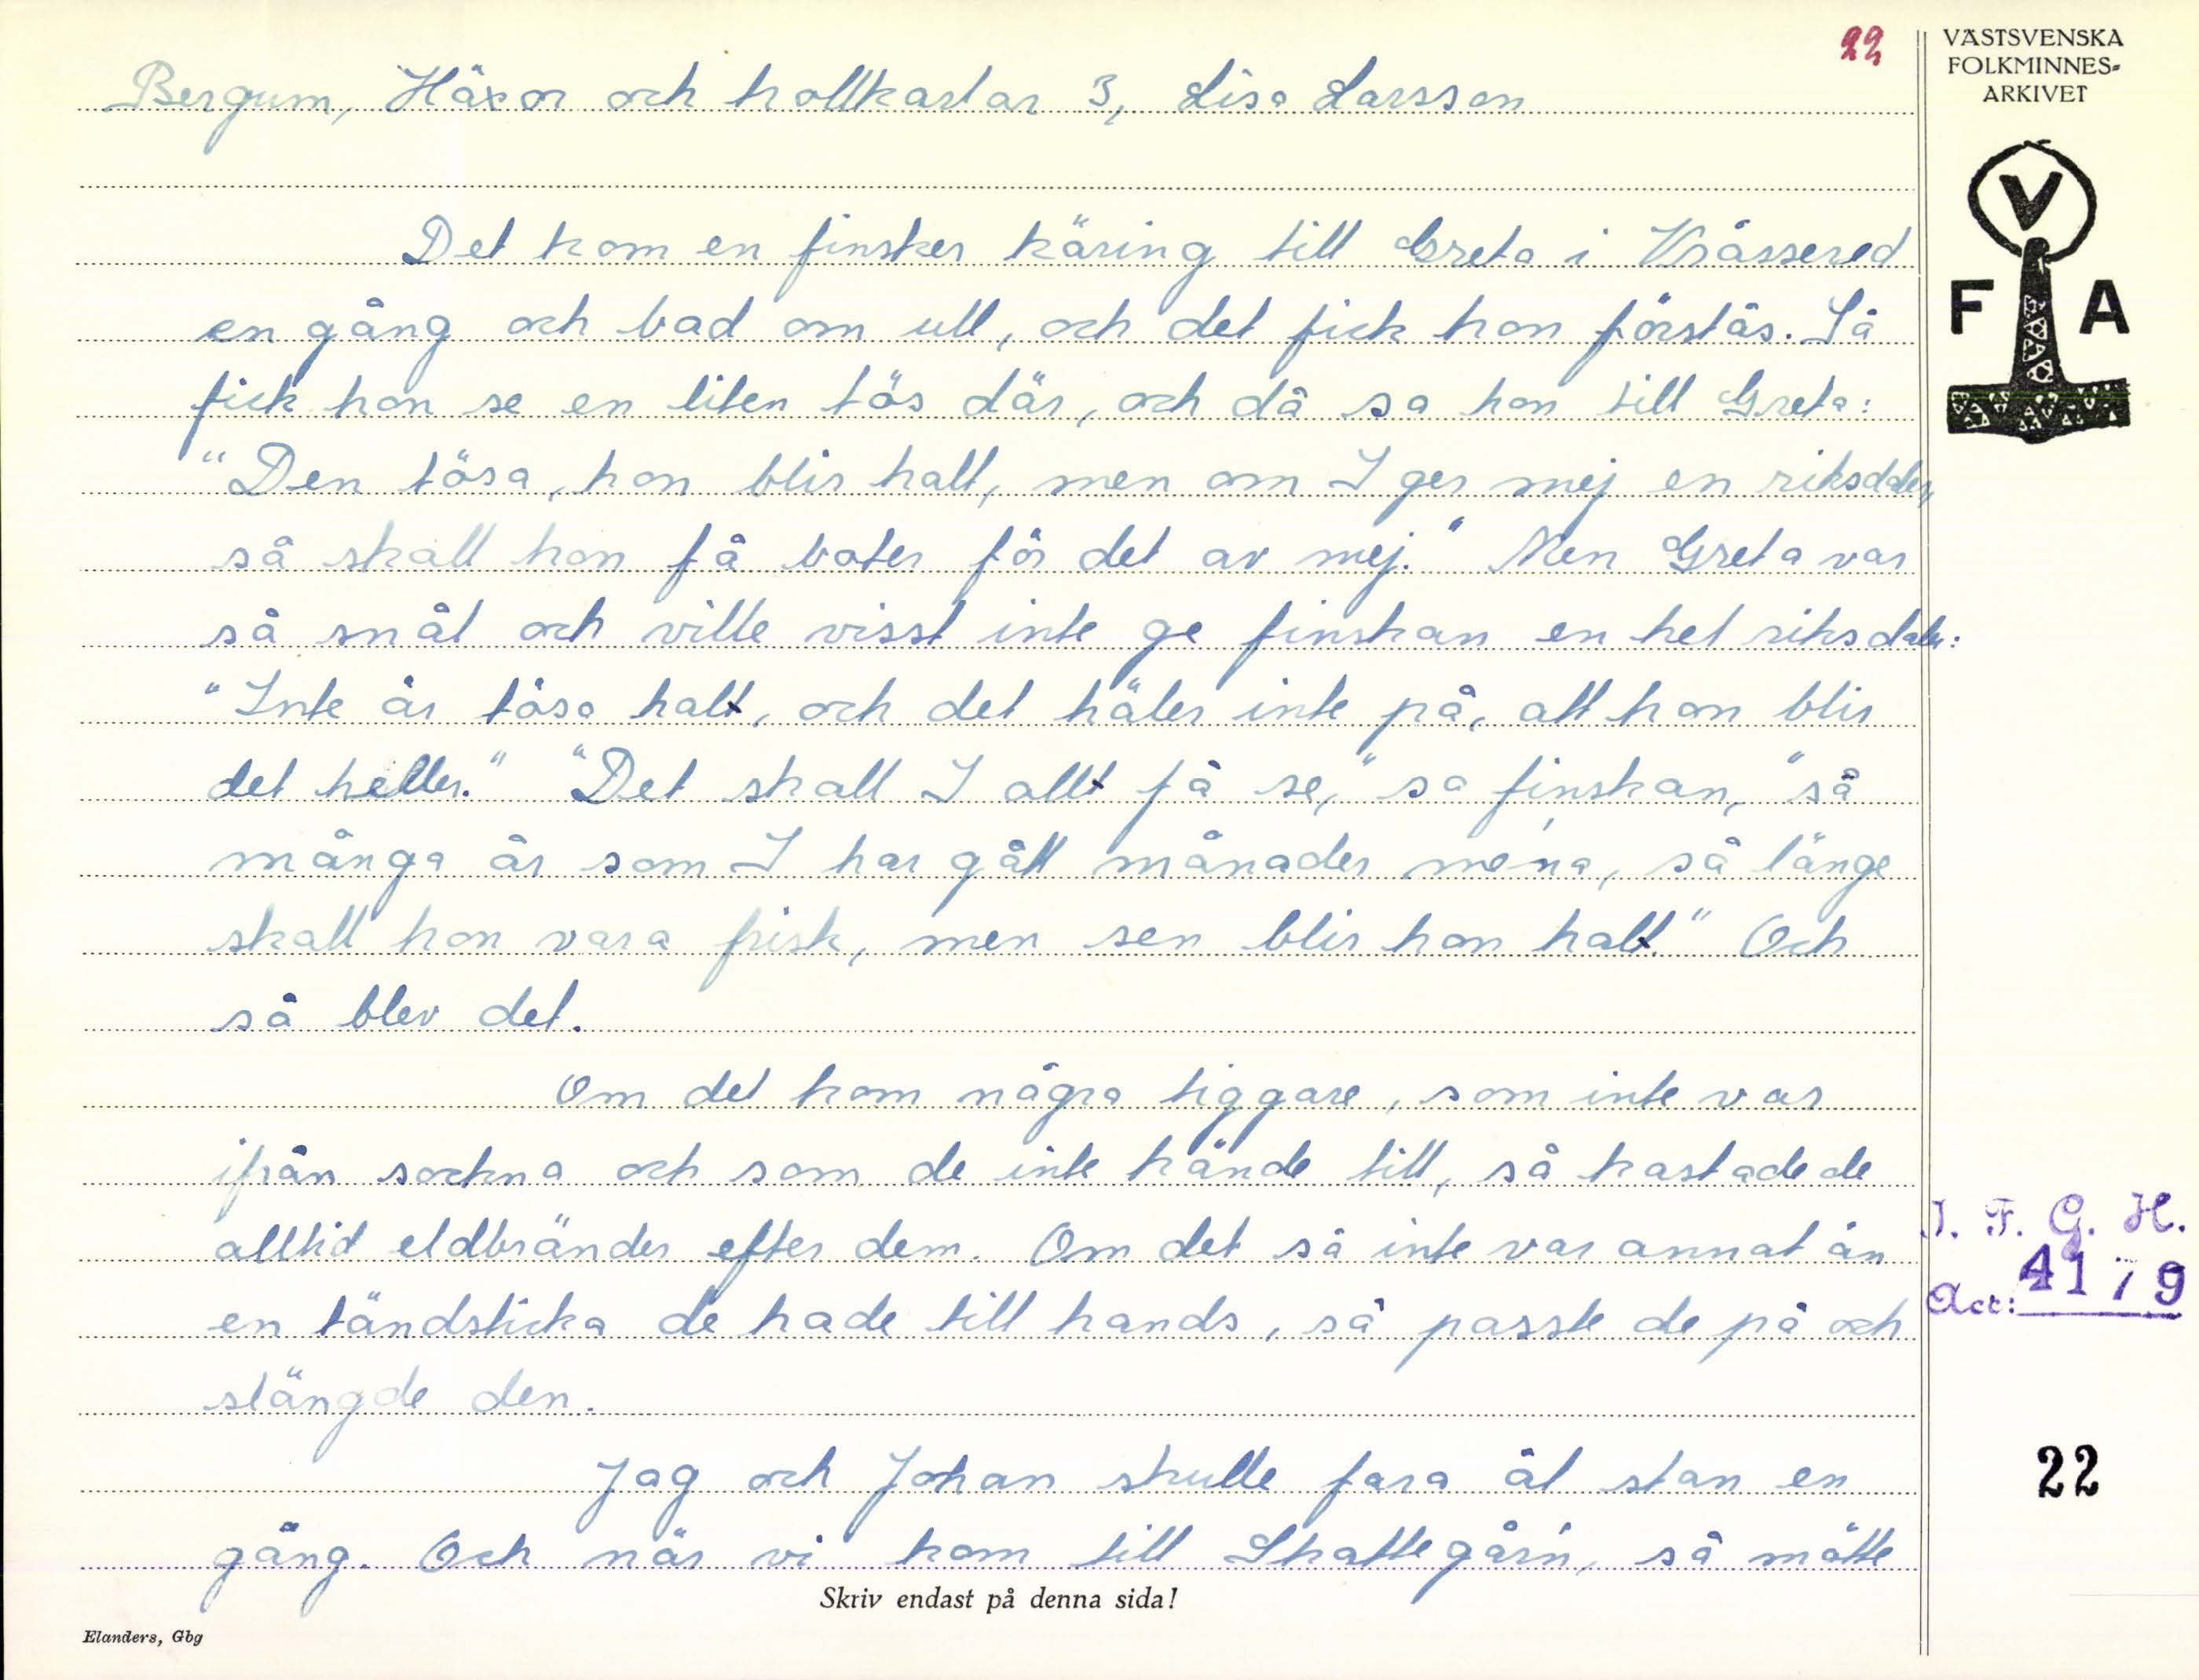 22
VÄSTSVENSKA
FOLKMINNES-
ARKIVET
V
F A
Bergum, Häxor och trollkarlar 3, Lisa Larsson
Det kom en finsker käring till Greta i Vråssered
en gång och bad om ull, och det fick hon förstås. Så
fick hon se en liten tös där, och då sa hon till Greta:
"Den tösa, hon blir halt, men om I ger mej en riksdaler,
så skall hon få boter för det av mej." Men Greta var
så snål och ville visst inte ge finskan en hel riksdaler:
"Inte är tösa halt, och det håler inte på, att hon blir
det heller." "Det skall I allt få se," sa finskan, "så
många år som I har gått månader me'na, så länge
skall hon vara frisk, men sen blir hon halt." Och
så blev det.
Om det kom några tiggare, som inte var
ifrån sockna och som de inte kände till, så kastade de
alltid eldbränder efter dem. Om det så inte var annat än
en tändsticka de hade till hands, så passte de på och
slängde den.
Jag och Johan skulle fara åt stan en
gång. Och när vi kom till Skattegårn, så mötte
I. F. G. H.
Acc: 4179
22
Skriv endast på denna sida!
Elanders, Gbg